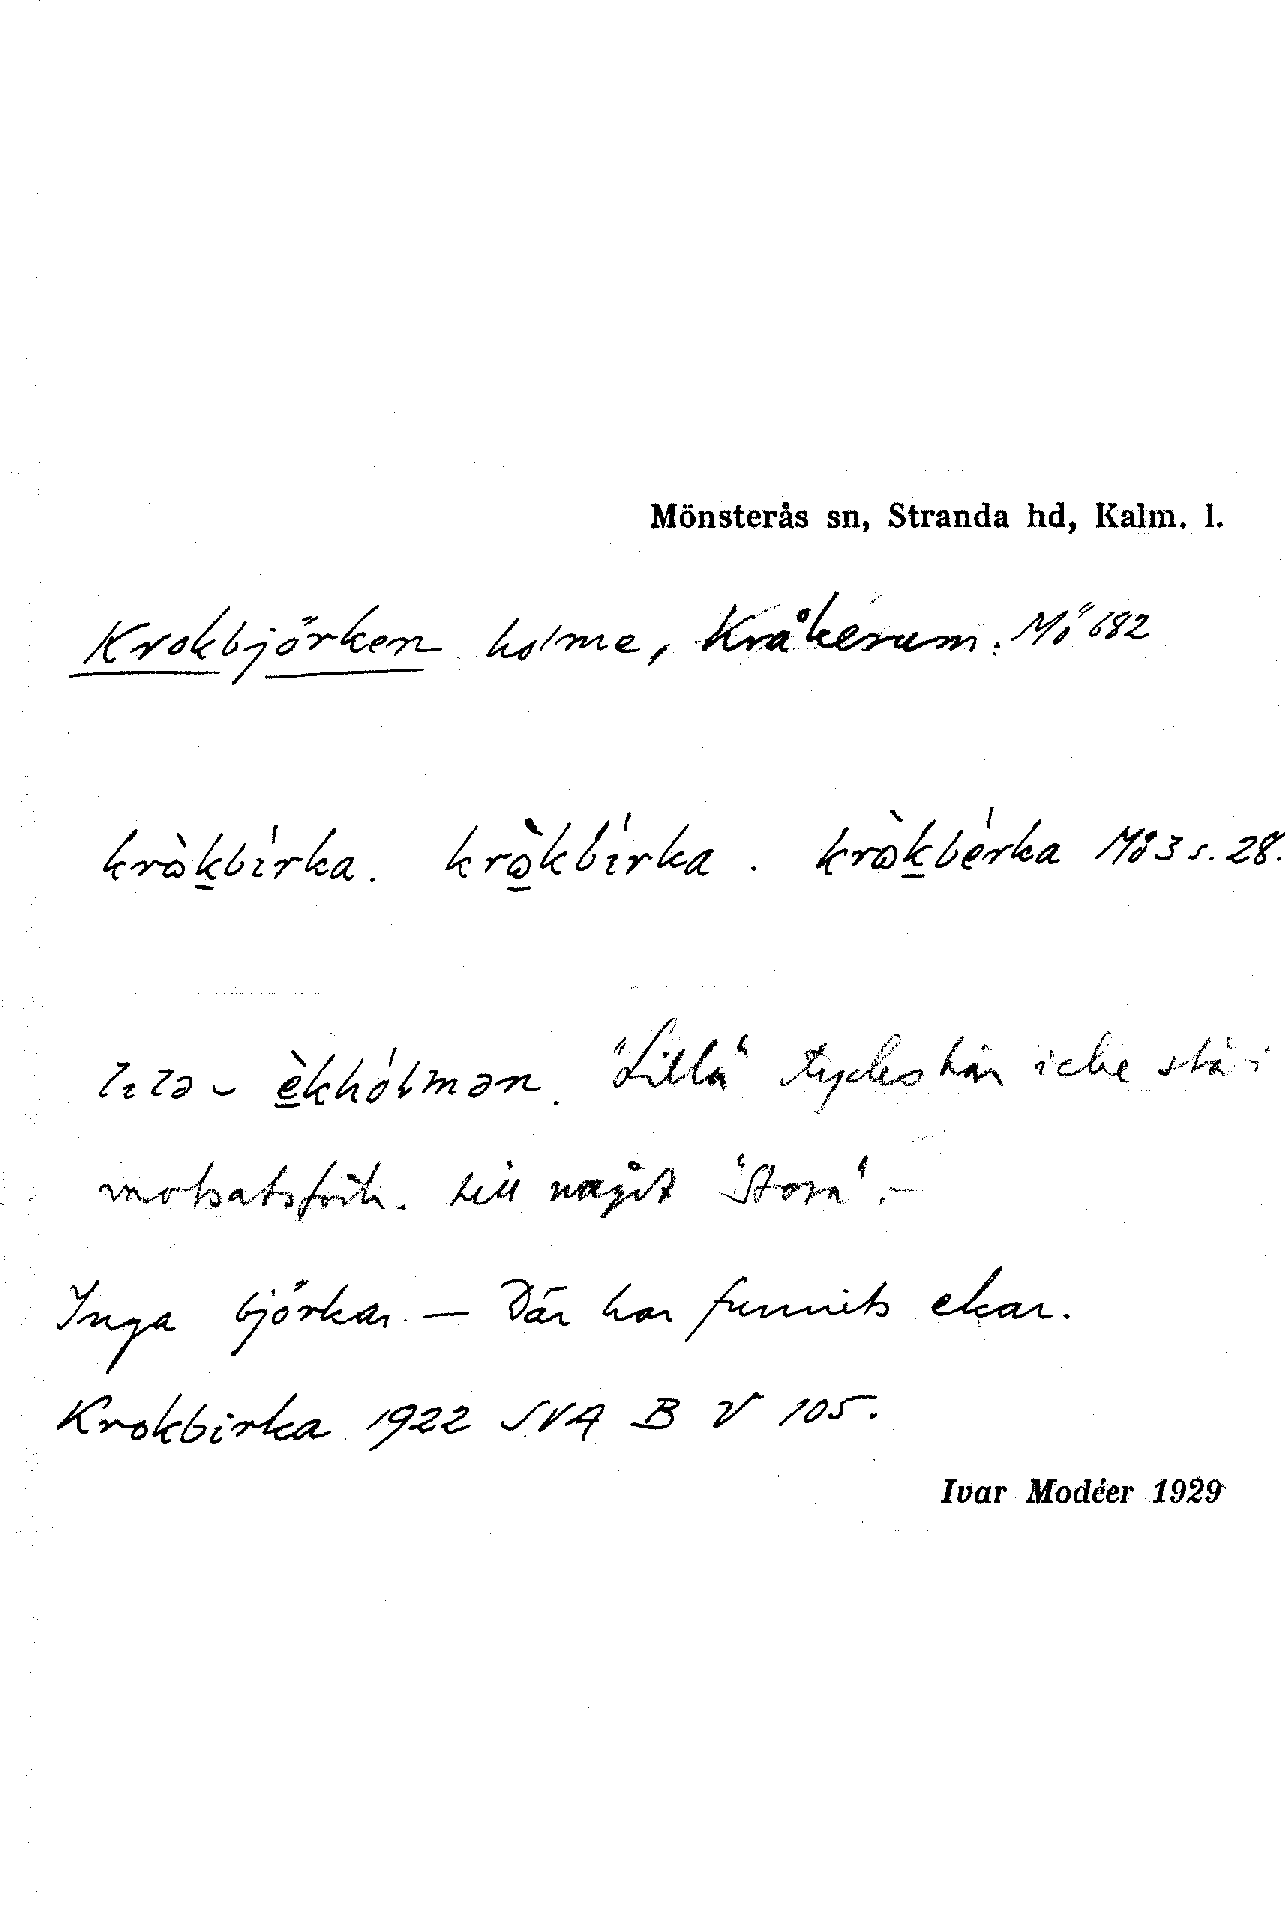 Mönsterås sn, Stranda hd, Kalm. l.
Krokbjörken holme, Kråkerum. Mö 682
krὼk̲bírka. krὼ̲kbírka. krὼk̲bérka Mö 3 s. 28.
lɩlə ⏑ è̲khólmən. "Lilla" tyckes här icke stå i
motsatsförh. till något "Stora".–
Inga björkar. — Där har funnits ekar.
Krokbirka 1922 SVA B V 105.
Ivar Modéer 1929